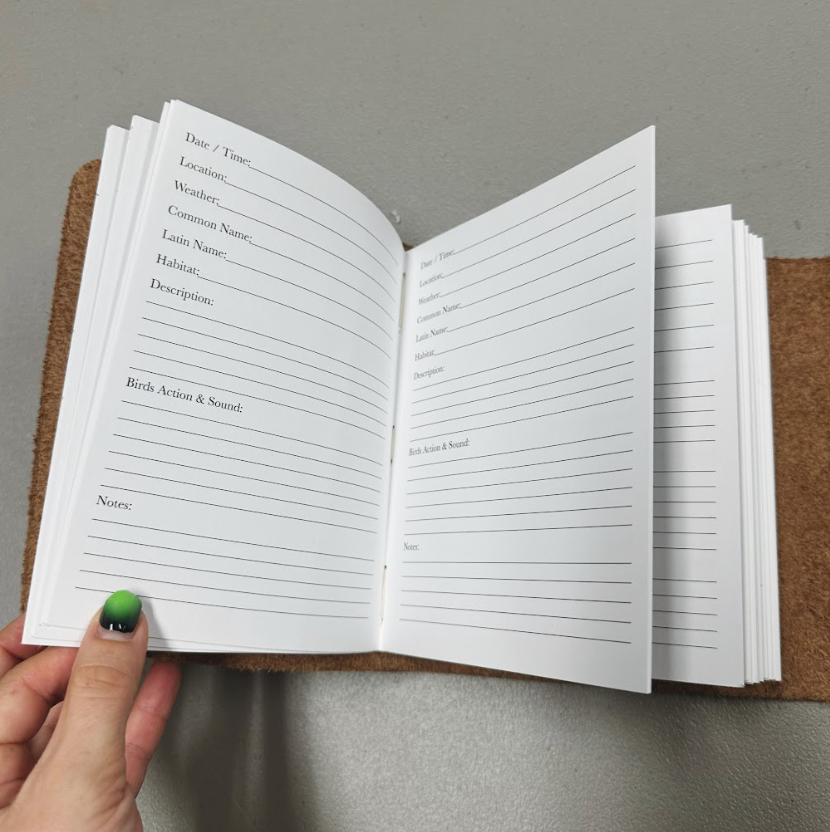 Date / Time:
Location:
Weather:
Common Name:
Latin Name:
Habitat:
Description:
Birds Action & Sound:
Notes:
Date / Time:
Location:
Weather:
Common Name:
Latin Name:
Habitat:
Description:
Birds Action & Sound:
Notes: